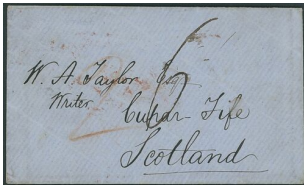 W. A. Taylor Esq
Writer
6
Cupar Fife
Scotland